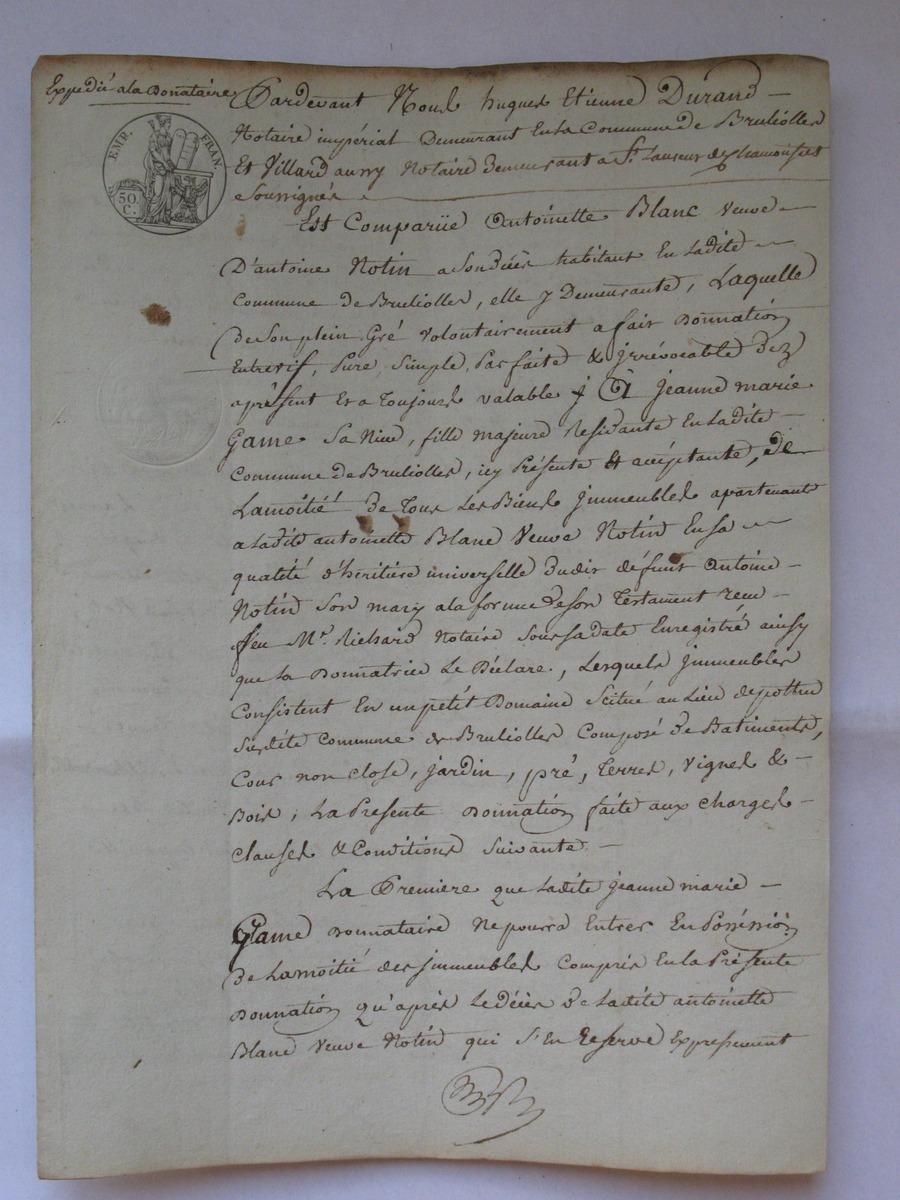 Expedié a la Donnataire
EMP. FRAN.
50 C.
Pardevant Nous hugues Etienne Durand
Notaire impérial Demeurant En la Commune de Brulliolles
Et Villard aussy Notaire Demeurant a St. Laurent de Chamousset
Soussignés
Est Comparüe Antoinette Blanc Veuve
D'antoine Notin a Son décès habitant En Ladite
Commune de Brulliolles, elle y Demeurante, Laquelle
De Son plein Gré Volontairement a fait Donnation
Entrevif, Pure, Simple, Parfaite & irrévocable dez
aprésent Et a Toujours valable, A jeanne marie
Game Sa Niece, fille majeure Residante En Ladite
Commune de Brulliolles, icy Présente & acceptante, de
La moitié de Tous Les Biens immeubles apartenant
a Ladite antoinette Blanc Veuve Notin En Sa
qualité d'héritière universelle dudit défunt Antoine
Notin Son mary a la forme de Son Testament recu
feu Mr. Richard Notaire Sous Sa date Enregistré ainsy
que La Donnatrice Le Déclare, Lesquels immeubles
Consistent En un petit Domaine Scitué au Lieu de pottu
Susdite Commune de Brulliolles Composé de Batiments,
Cour non close, jardin, pré, Terres, Vignes &
Bois, La Presente Donnation faite aux Charges
clauses & Conditions Suivante.
La Premiere que Ladite jeanne marie
Game Donnataire Ne pourra Entrer En Possession
De La moitié des immeubles Compris En la Présente
Donnation qu'après Le décès de Ladite antoinette
Blanc Veuve Notin qui S'En Reserve Expressement